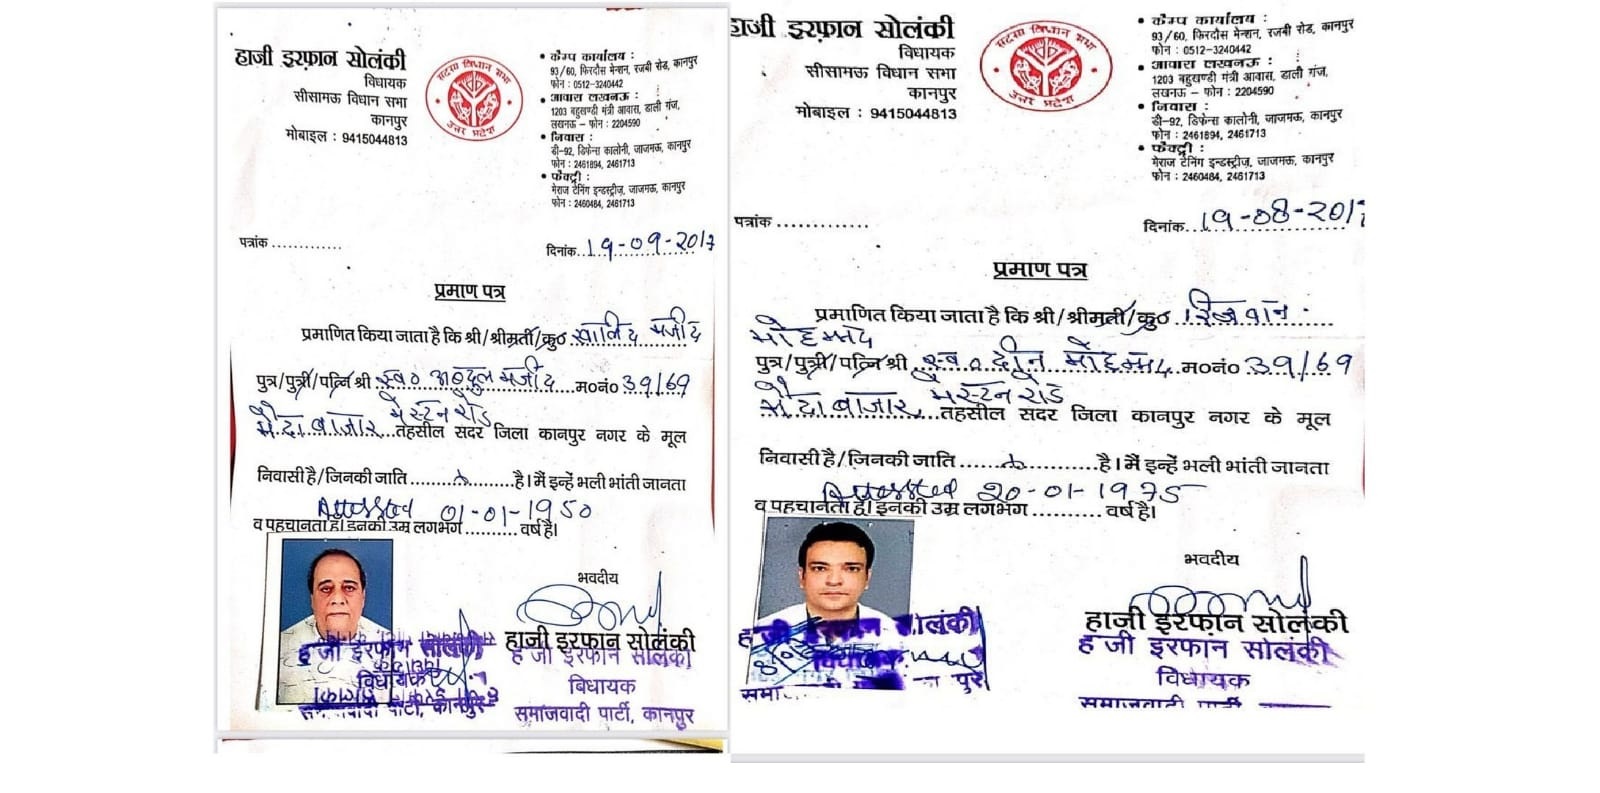 हाजी इरफ़ान सोलंकी
विधायक
सीसामऊ विधान सभा
कानपुर
मोबाइल : 9415044813
सदस्य विधान सभा
उत्तर प्रदेश
• कैम्प कार्यालय :
93/60, फिरदौस मेन्शन, रजबी रोड, कानपुर
फोन : 0512-3240442
• आवास लखनऊ :
1203 बहुखण्डी मंत्री आवास, डाली गंज,
लखनऊ – फोन : 2204590
• निवास :
डी-92, डिफेन्स कालोनी, जाजमऊ, कानपुर
फोन : 2461894, 2461713
• फैक्ट्री :
मेराज टेनिंग इन्डस्ट्रीज़, जाजमऊ, कानपुर
फोन : 2460484, 2461713
पत्रांक .............
दिनांक..19-09-2017
प्रमाण पत्र
प्रमाणित किया जाता है कि श्री/श्रीमती/कु० खालिद मजीद
पुत्र/पुत्री/पत्नि श्री स्व० अब्दुल मजीद म०नं० 39/69
मैदा बाजार, मेस्टन रोड तहसील सदर जिला कानपुर नगर के मूल
निवासी है/जिनकी जाति ................है। मैं इन्हें भली भांती जानता
Attested 01-01-1950
व पहचानता हूँ। इनकी उम्र लगभग .......... वर्ष है।
भवदीय
हाजी इरफ़ान सोलंकी
हाजी इरफान सोलंकी
विधायक
समाजवादी पार्टी, कानपुर
हाजी इरफान सोलंकी
विधायक
समाजवादी पार्टी, कानपुर
हाजी इरफ़ान सोलंकी
विधायक
सीसामऊ विधान सभा
कानपुर
मोबाइल : 9415044813
सदस्य विधान सभा
उत्तर प्रदेश
• कैम्प कार्यालय :
93/60, फिरदौस मेन्शन, रजबी रोड, कानपुर
फोन : 0512-3240442
• आवास लखनऊ :
1203 बहुखण्डी मंत्री आवास, डाली गंज,
लखनऊ – फोन : 2204590
• निवास :
डी-92, डिफेन्स कालोनी, जाजमऊ, कानपुर
फोन : 2461894, 2461713
• फैक्ट्री :
मेराज टेनिंग इन्डस्ट्रीज़, जाजमऊ, कानपुर
फोन : 2460484, 2461713
पत्रांक .............
दिनांक...19-08-2017
प्रमाण पत्र
प्रमाणित किया जाता है कि श्री/श्रीमती/कु० रिजवान
मोहम्मद
पुत्र/पुत्री/पत्नि श्री स्व० दीन मोहम्मद म०नं० 39/69
मैदा बाजार, मेस्टन रोड तहसील सदर जिला कानपुर नगर के मूल
निवासी है/जिनकी जाति ................है। मैं इन्हें भली भांती जानता
Attested 20-01-1975
व पहचानता हूँ। इनकी उम्र लगभग .......... वर्ष है।
भवदीय
हाजी इरफ़ान सोलंकी
हाजी इरफान सोलंकी
विधायक
समाजवादी पार्टी
हाजी इरफान सोलंकी
विधायक